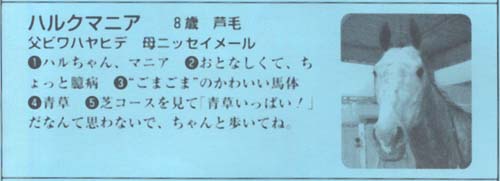 ハルクマニア 8歳 芦毛
父ビワハヤヒデ 母ニッセイメール
❶ハルちゃん、マニア ❷おとなしくて、ち
ょっと臆病 ❸“ごまごま”のかわいい馬体
❹青草 ❺芝コースを見て「青草いっぱい!」
だなんて思わないで、ちゃんと歩いてね。